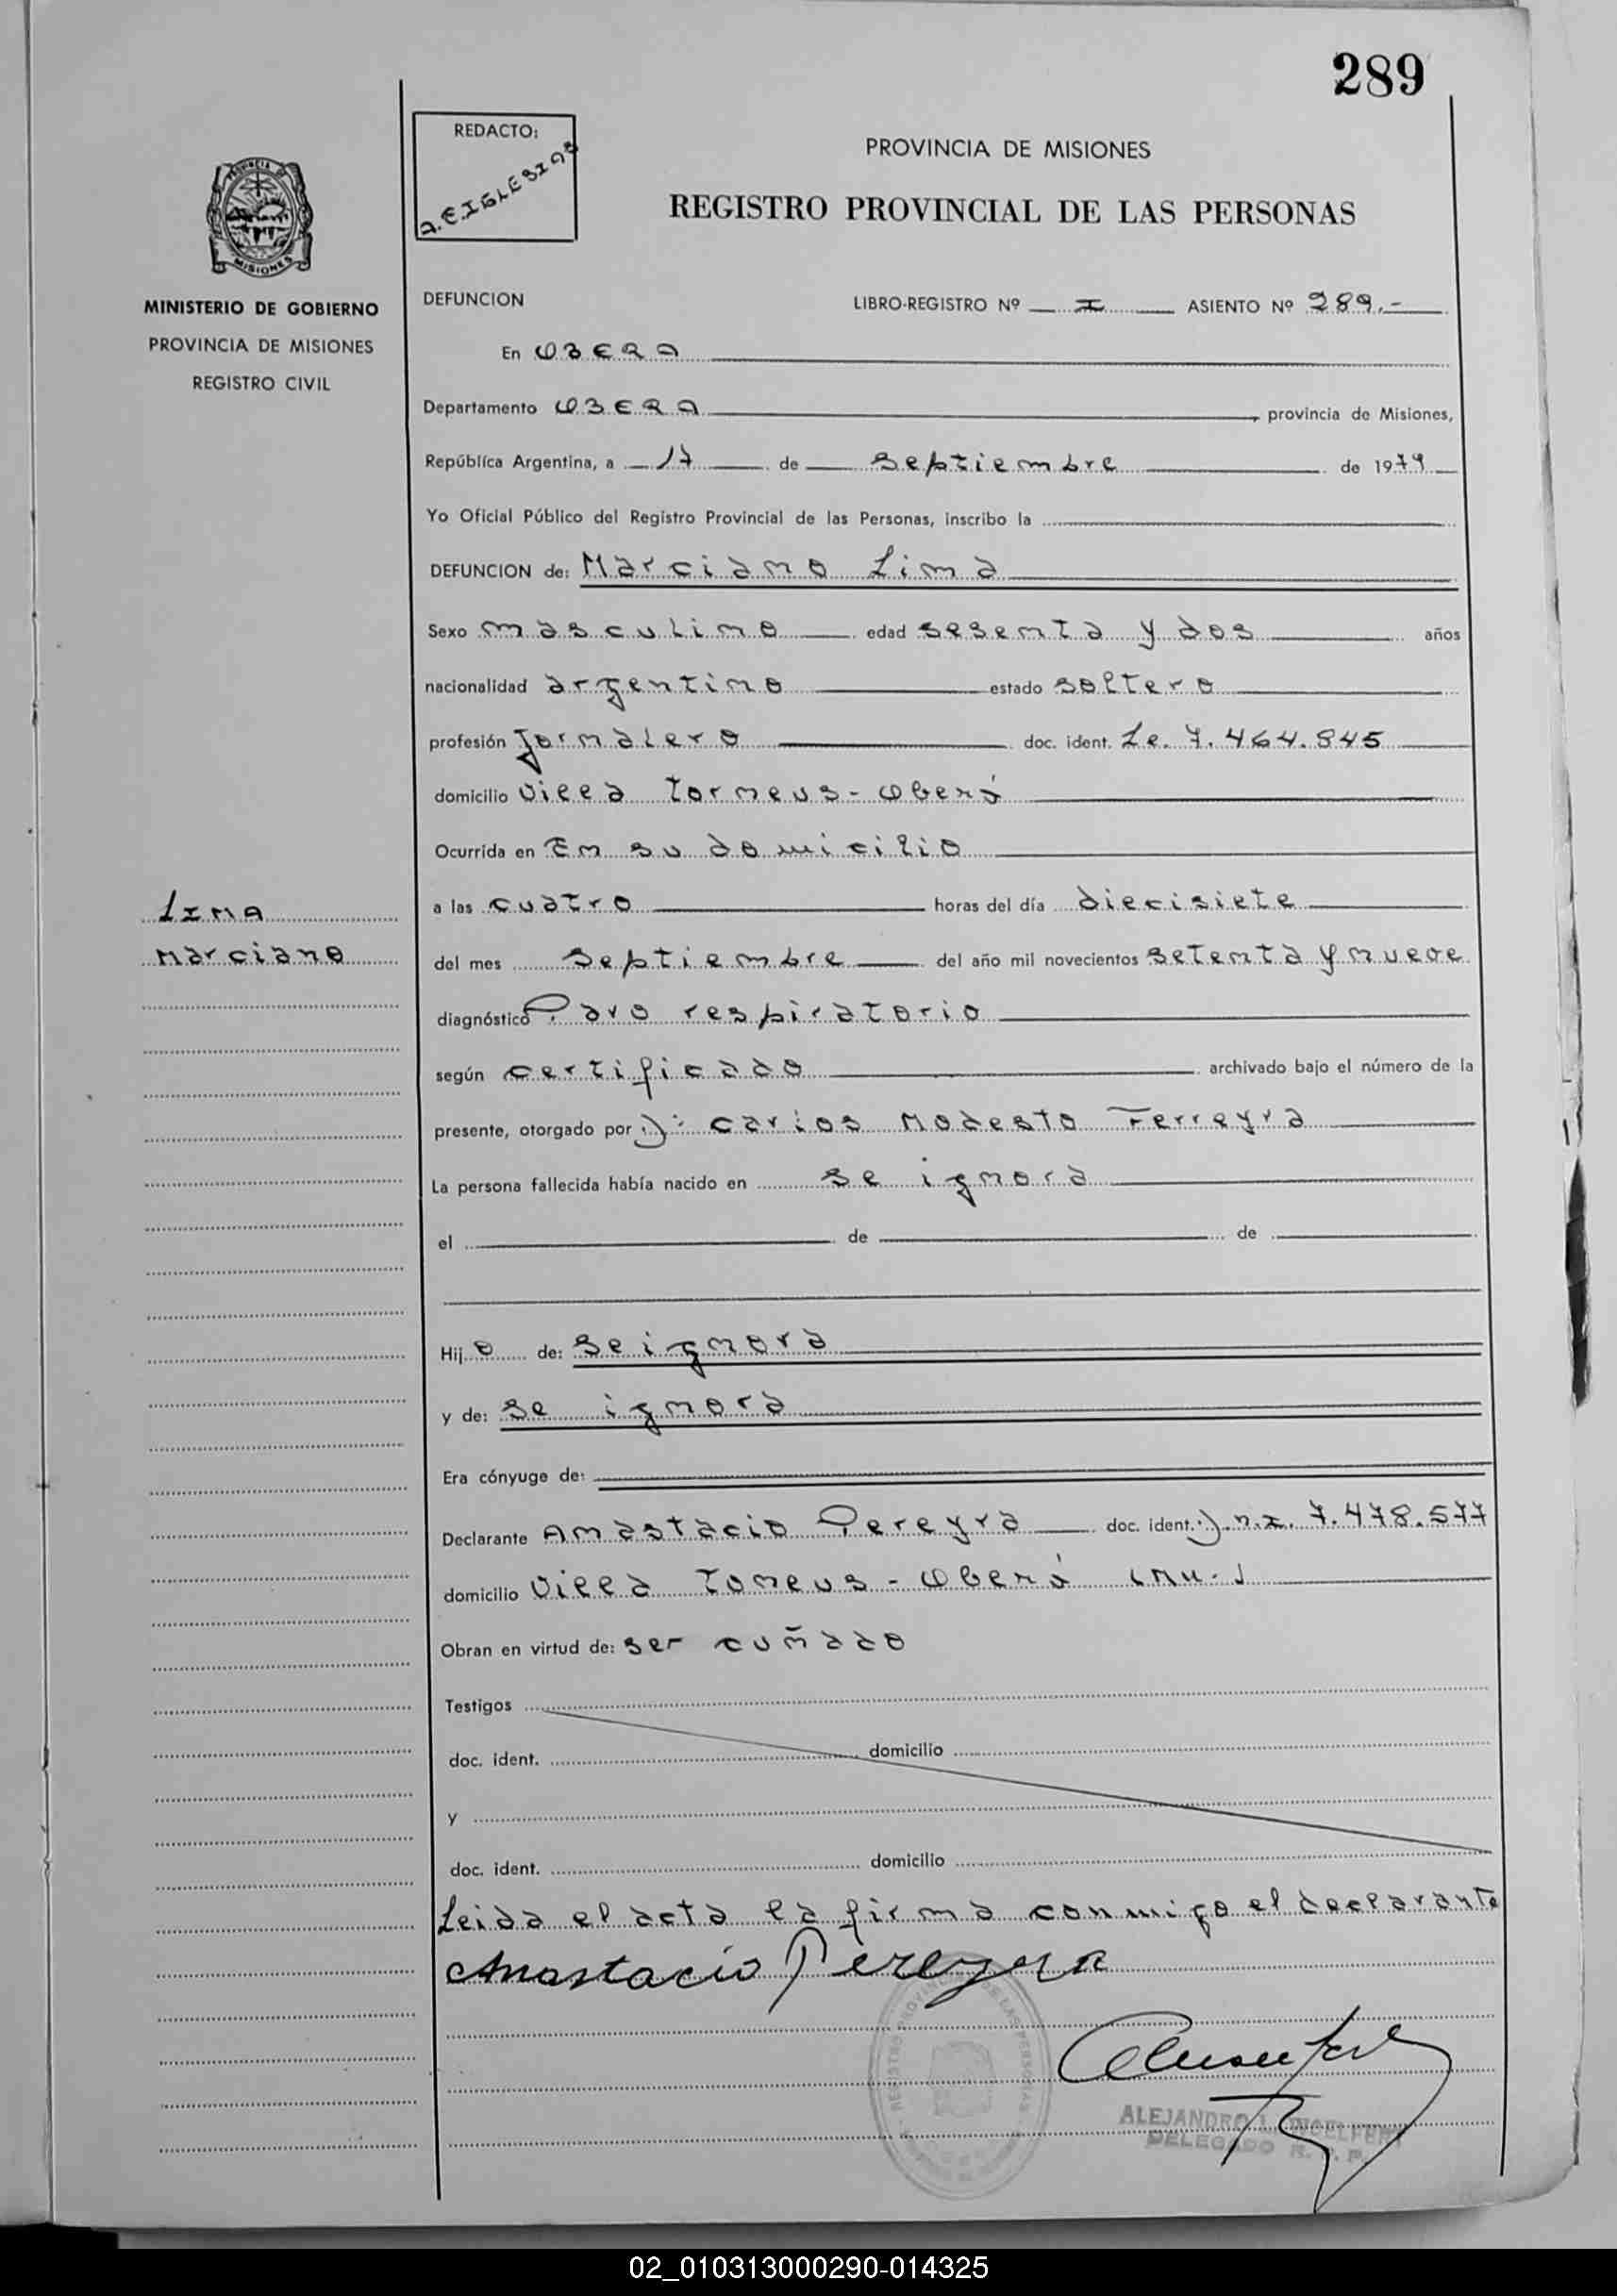 289
REDACTO:
A.E.IGLESIAS
PROVINCIA DE MISIONES
REGISTRO PROVINCIAL DE LAS PERSONAS
PROVINCIA DE
MISIONES
MINISTERIO DE GOBIERNO
PROVINCIA DE MISIONES
REGISTRO CIVIL
DEFUNCION LIBRO-REGISTRO Nº I ASIENTO Nº 289.-
En OBERA
Departamento OBERA, provincia de Misiones,
República Argentina, a 17 de septiembre de 1979
Yo Oficial Público del Registro Provincial de las Personas, inscribo la
DEFUNCION de: Marciano Lima
Sexo masculino edad sesenta y dos años
nacionalidad argentino estado soltero
profesión Jornalero doc. ident. Le. 7.464.845
domicilio Villa Torneus - Oberá
Ocurrida en En su domicilio
LIMA
Marciano
a las cuatro horas del día diecisiete
del mes septiembre del año mil novecientos setenta y nueve
diagnóstico Paro respiratorio
según certificado archivado bajo el número de la
presente, otorgado por D: Carlos Modesto Ferreyra
La persona fallecida había nacido en se ignora
el de de
Hijo de: se ignora
y de: se ignora
Era cónyuge de:
Declarante Anastacio Pereyra doc. ident. D.n.I. 7.478.577
domicilio Villa Toneus - Oberá (Mn.)
Obran en virtud de: ser cuñado
Testigos
doc. ident. domicilio
y
doc. ident. domicilio
Leida el acta la firma conmigo el declarante
Anastacio Pereyra
REGISTRO PROVINCIAL DE LAS PERSONAS
ALEJANDRO L.
DELEGADO R. P. P.
02_010313000290-014325